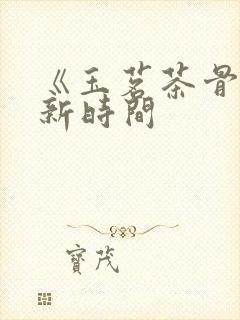 《玉茗茶骨
新時間
寶茂